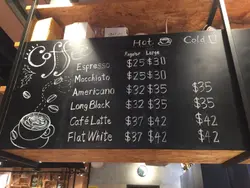 Coffee
Hot Cold
Regular Large
Espresso $25 $30
Macchiato $25 $30
Americano $32 $35 $35
Long Black $32 $35 $35
Café Latte $37 $42 $42
Flat White $37 $42 $42